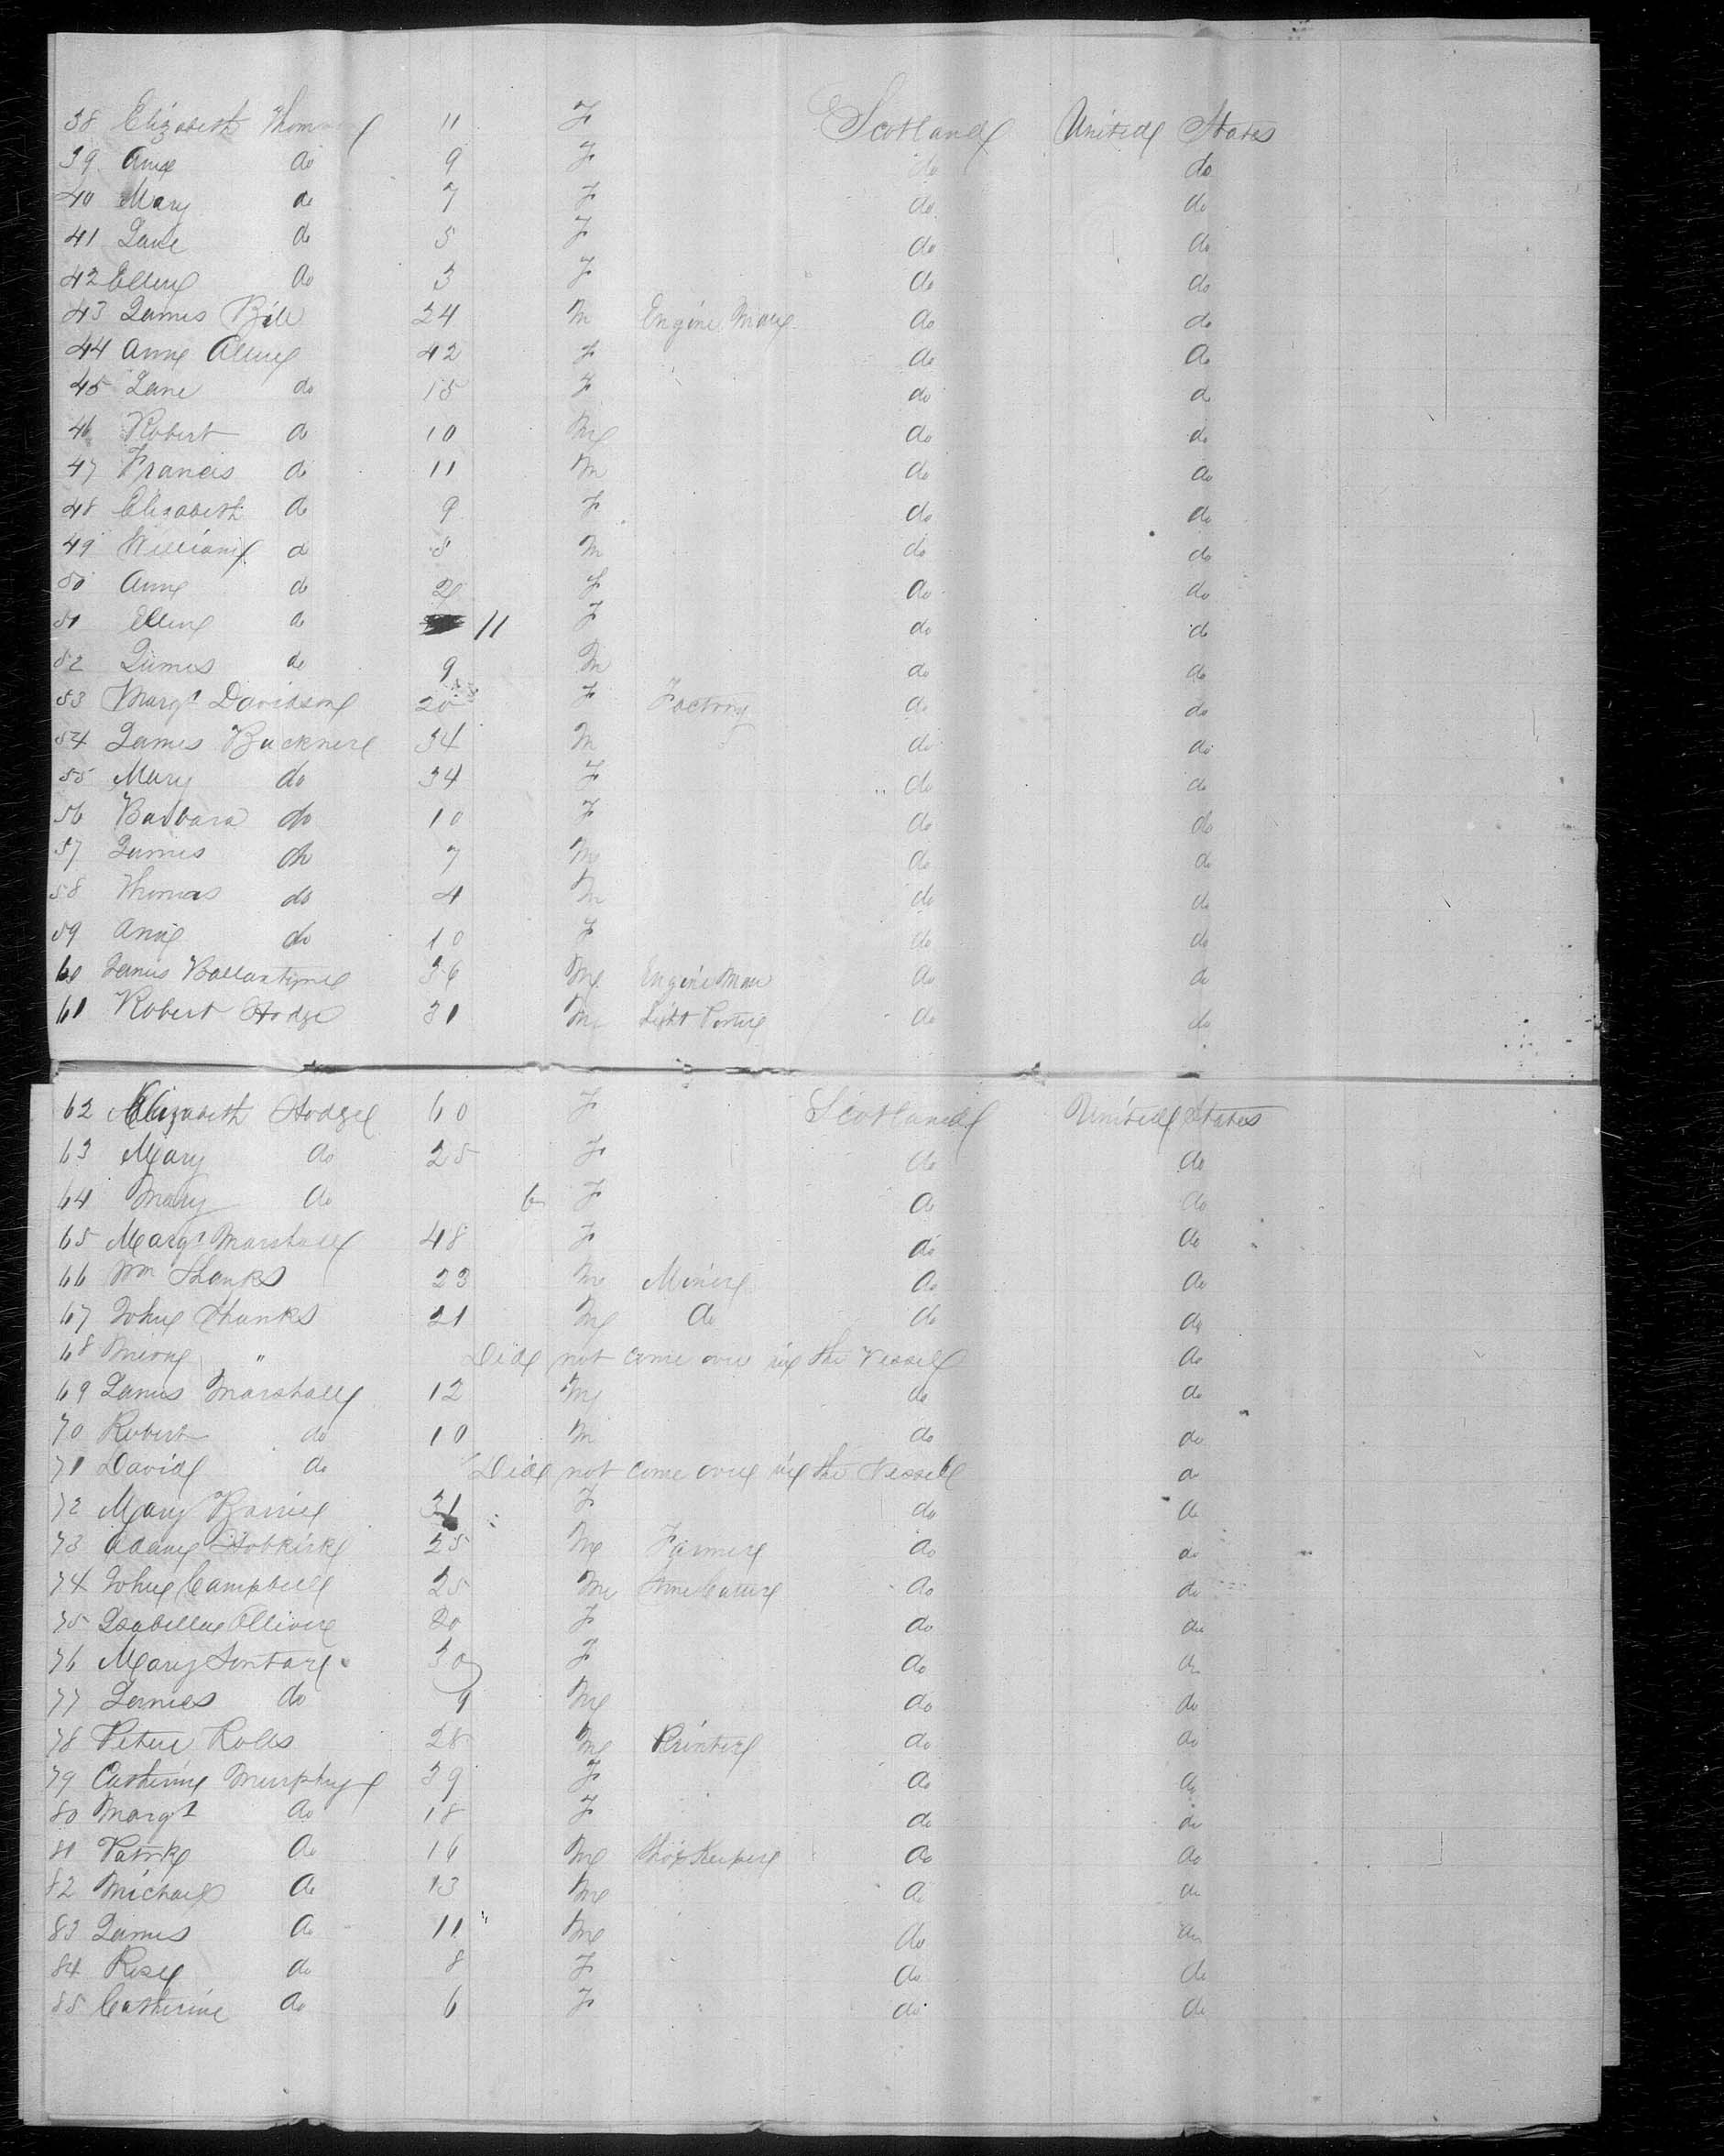 38 Elizabeth Thomson 11 F Scotland United States
39 Ann do 9 F do do
40 Mary do 7 F do do
41 Jane do 5 F do do
42 Ellen do 3 F do do
43 James Bell 24 M Engine Man do do
44 Ann Allen 42 F do do
45 Jane do 15 F do do
46 Robert do 10 M do do
47 Francis do 11 M do do
48 Elizabeth do 9 F do do
49 William do M do do
50 Ann do F do do
51 Ellen do 11 F do do
52 James do 9 M do do
53 Margt Davidson 20 F Factory do do
54 James Buckner 34 M do do
55 Mary do 34 F do do
56 Barbara do 10 F do do
57 James do 7 M do do
58 Thomas do 4 M do do
59 Ann do 10 F do do
60 James Ballantyne 36 M Engine Man do do
61 Robert Hodge 31 M Light Porter do do
62 Elizabeth Hodge 60 F Scotland United States
63 Mary do 25 F do do
64 Mary do 6 F do do
65 Margt Marshall 48 F do do
66 Wm Shanks 23 M Miner do do
67 John Shanks 21 M do do do
68 " Did not come over in the Vessel do
69 James Marshall 12 M do do
70 Robert do 10 M do do
71 David do Did not come over in the Vessel do
72 Mary Barrie 31 F do do
73 Adam Hobkirk 25 M Farmer do do
74 John Campbell 25 M Stone Cutter do do
75 Isabella Olliver 20 F do do
76 Mary 30 F do do
77 James do 9 M do do
78 Peter Rolls 28 M Printer do do
79 Catherine Murphy 39 F do do
80 Margt do 18 F do do
81 Patrk do 16 M Shop Keeper do do
82 Michael do 13 M do do
83 James do 11 M do do
84 Rose do 8 F do do
85 Catherine do 6 F do do